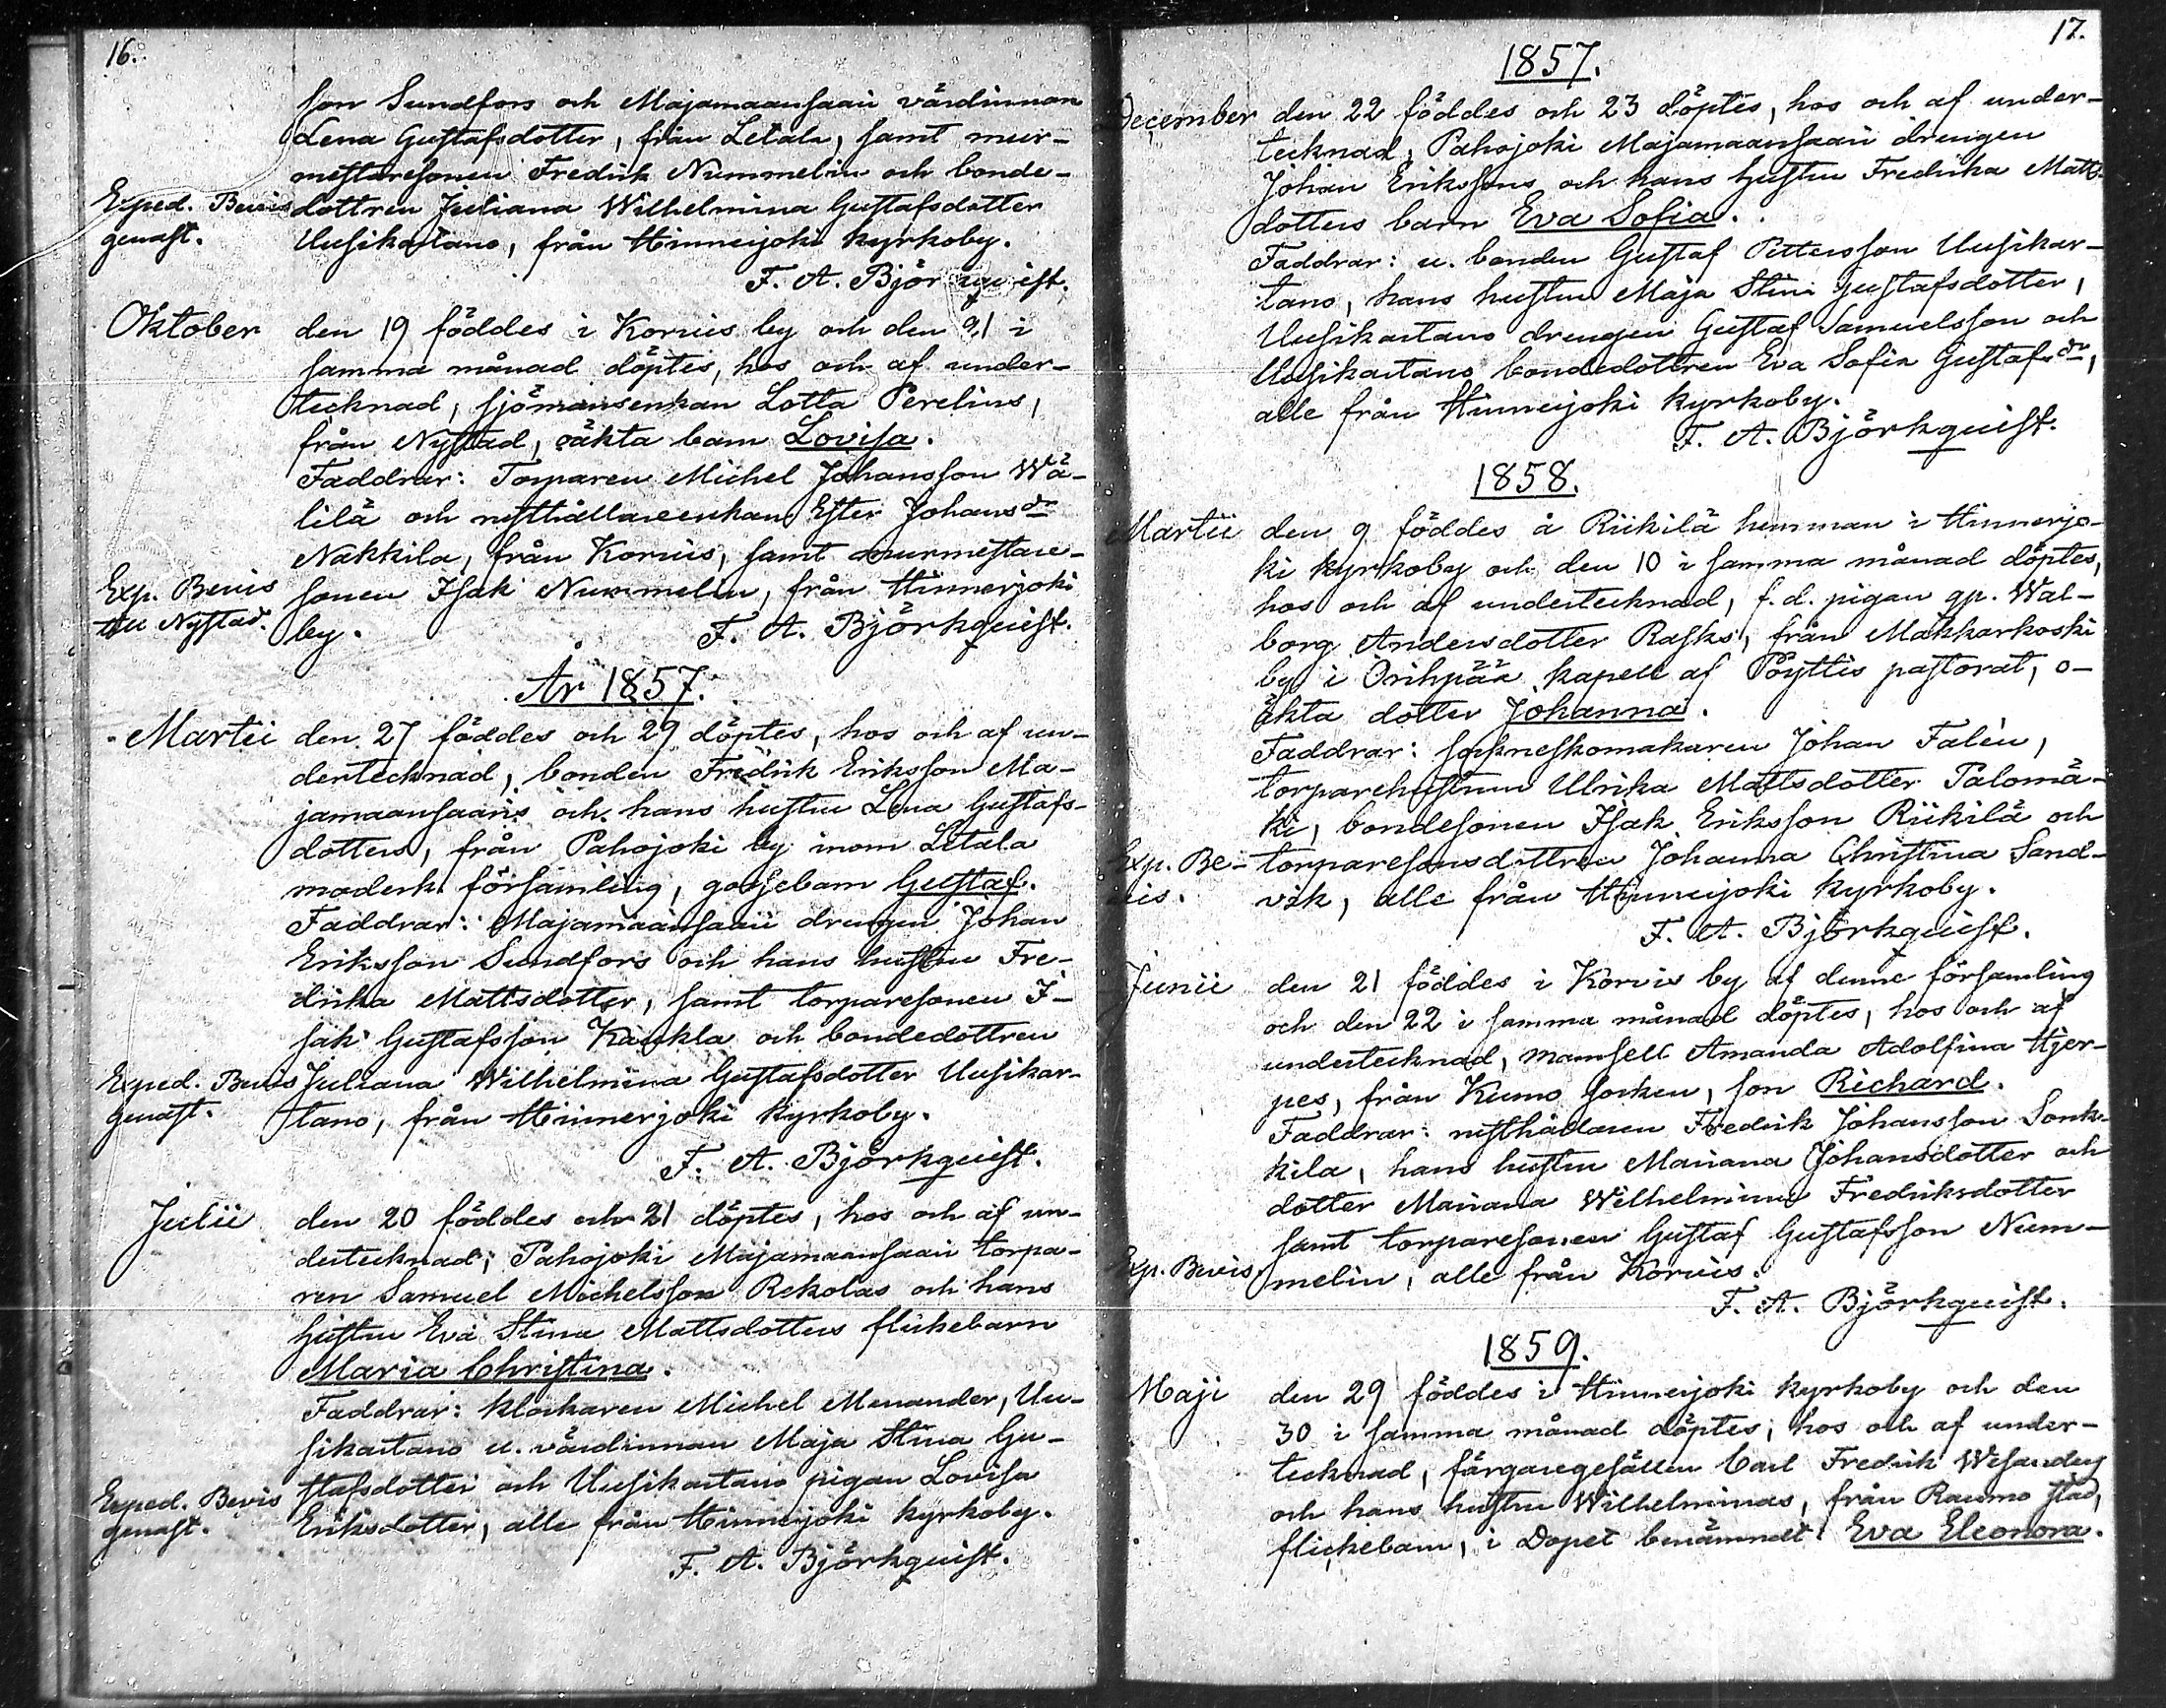 16.
son Sundfors och Majamaansaari värdinnan
Lena Gustafsdotter, från Letala, samt mur-
mestaresonen Fredrik Nummelin och bonde-
Exped. Bevis dottren Juliana Wilhelmina Gustafsdotter
genast. Uusikartano, från Hinnerjoki kyrkoby.
F. A. Björkquist.
Oktober den 19 föddes i Korvis by och den 21 i
samma månad döptes, hos och af under-
tecknad, sjömansenkan Lotta Perelius,
från Nystad, oäkta barn Lovisa.
Faddrar: Torparen Michel Johansson Wä-
lilä och rusthållareenkan Ester Johansdr
Nakkila, från Korvis, samt murmestare-
Exp. Bevis sonen Isak Nummelin, från Hinnerjoki
till Nystad. by. F. A. Björkquist.
År 1857.
Martii den 27 föddes och 29 döptes, hos och af un-
dertecknad, bonden Fredrik Eriksson Ma-
jamaansaaris och hans hustru Lena Gustafs-
dotters, från Pahojoki by inom Letala
moderk. församling, gossebarn Gustaf.
Faddrar: Majamaansaari drengen Johan
Eriksson Sundfors och hans hustru Fre-
drika Mattsdotter, samt torparesonen I-
sak Gustafsson Kaukla och bondedottren
Exped. Bevis Juliana Wilhelmina Gustafsdotter Uusikar-
genast. tano, från Hinnerjoki kyrkoby.
F. A. Björkquist.
Julii den 20 föddes och 21 döptes, hos och af un-
dertecknad, Pahojoki Majamaansaari torpa-
ren Samuel Michelsson Rekolas och hans
hustru Eva Stina Mattsdotters flickebarn
Maria Christina.
Faddrar: klockaren Michel Menander, Uu-
sikartano u. värdinnan Maja Stina Gu-
Exped. Bevis stafsdotter och Uusikartano pigan Lovisa
genast. Eriksdotter, alle från Hinnerjoki kyrkoby.
F. A. Björkquist.
17.
1857.
December den 22 föddes och 23 döptes, hos och af under-
tecknad, Pahojoki Majamaansaari drengen
Johan Erikssons och hans hustru Fredrika Matts-
dotters barn Eva Sofia.
Faddrar: u. bonden Gustaf Pettersson Uusikar-
tano, hans hustru Maja Stina Gustafsdotter,
Uusikartano drengen Gustaf Samuelsson och
Uusikartano bondedottren Eva Sofia Gustafsdr,
alle från Hinnerjoki kyrkoby.
F. A. Björkquist.
1858.
Martii den 9 föddes å Riikilä hemman i Hinnerjo-
ki kyrkoby och den 10 i samma månad döptes,
hos och af undertecknad, f. d. pigan gp. Wal-
borg Andersdotter Rasks, från Makkarkoski
by i Orihpää kapell af Pöyttis pastorat, o-
äkta dotter Johanna.
Faddrar: sockneskomakaren Johan Falèn,
torparehustrun Ulrika Mattsdotter Palomä-
ki, bondesonen Isak Eriksson Riikilä och
Exp. Be- torparesonsdottren Johanna Christina Sand-
vis. vik, alle från Hinnerjoki kyrkoby.
F. A. Björkquist.
Junii den 21 föddes i Korvis by af denne församling
och den 22 i samma månad döptes, hos och af
undertecknad, mamsell Amanda Adolfina Hjer-
pes, från Kumo socken, son Richard.
Faddrar: rusthållaren Fredrik Johansson Sonk-
kila, hans hustru Mariana Johansdotter och
dotter Mariana Wilhelmina Fredriksdotter
samt torparesonen Gustaf Gustafsson Num-
Exp. Bevis. melin, alle från Korvis.
F. A. Björkquist.
1859.
Maji den 29 föddes i Hinnerjoki kyrkoby och den
30 i samma månad döptes, hos och af under-
tecknad, färgaregesällen Carl Fredrik Wesanders
och hans hustru Wilhelminas, från Raumo stad,
flickebarn, i Dopet benämndt Eva Eleonora.